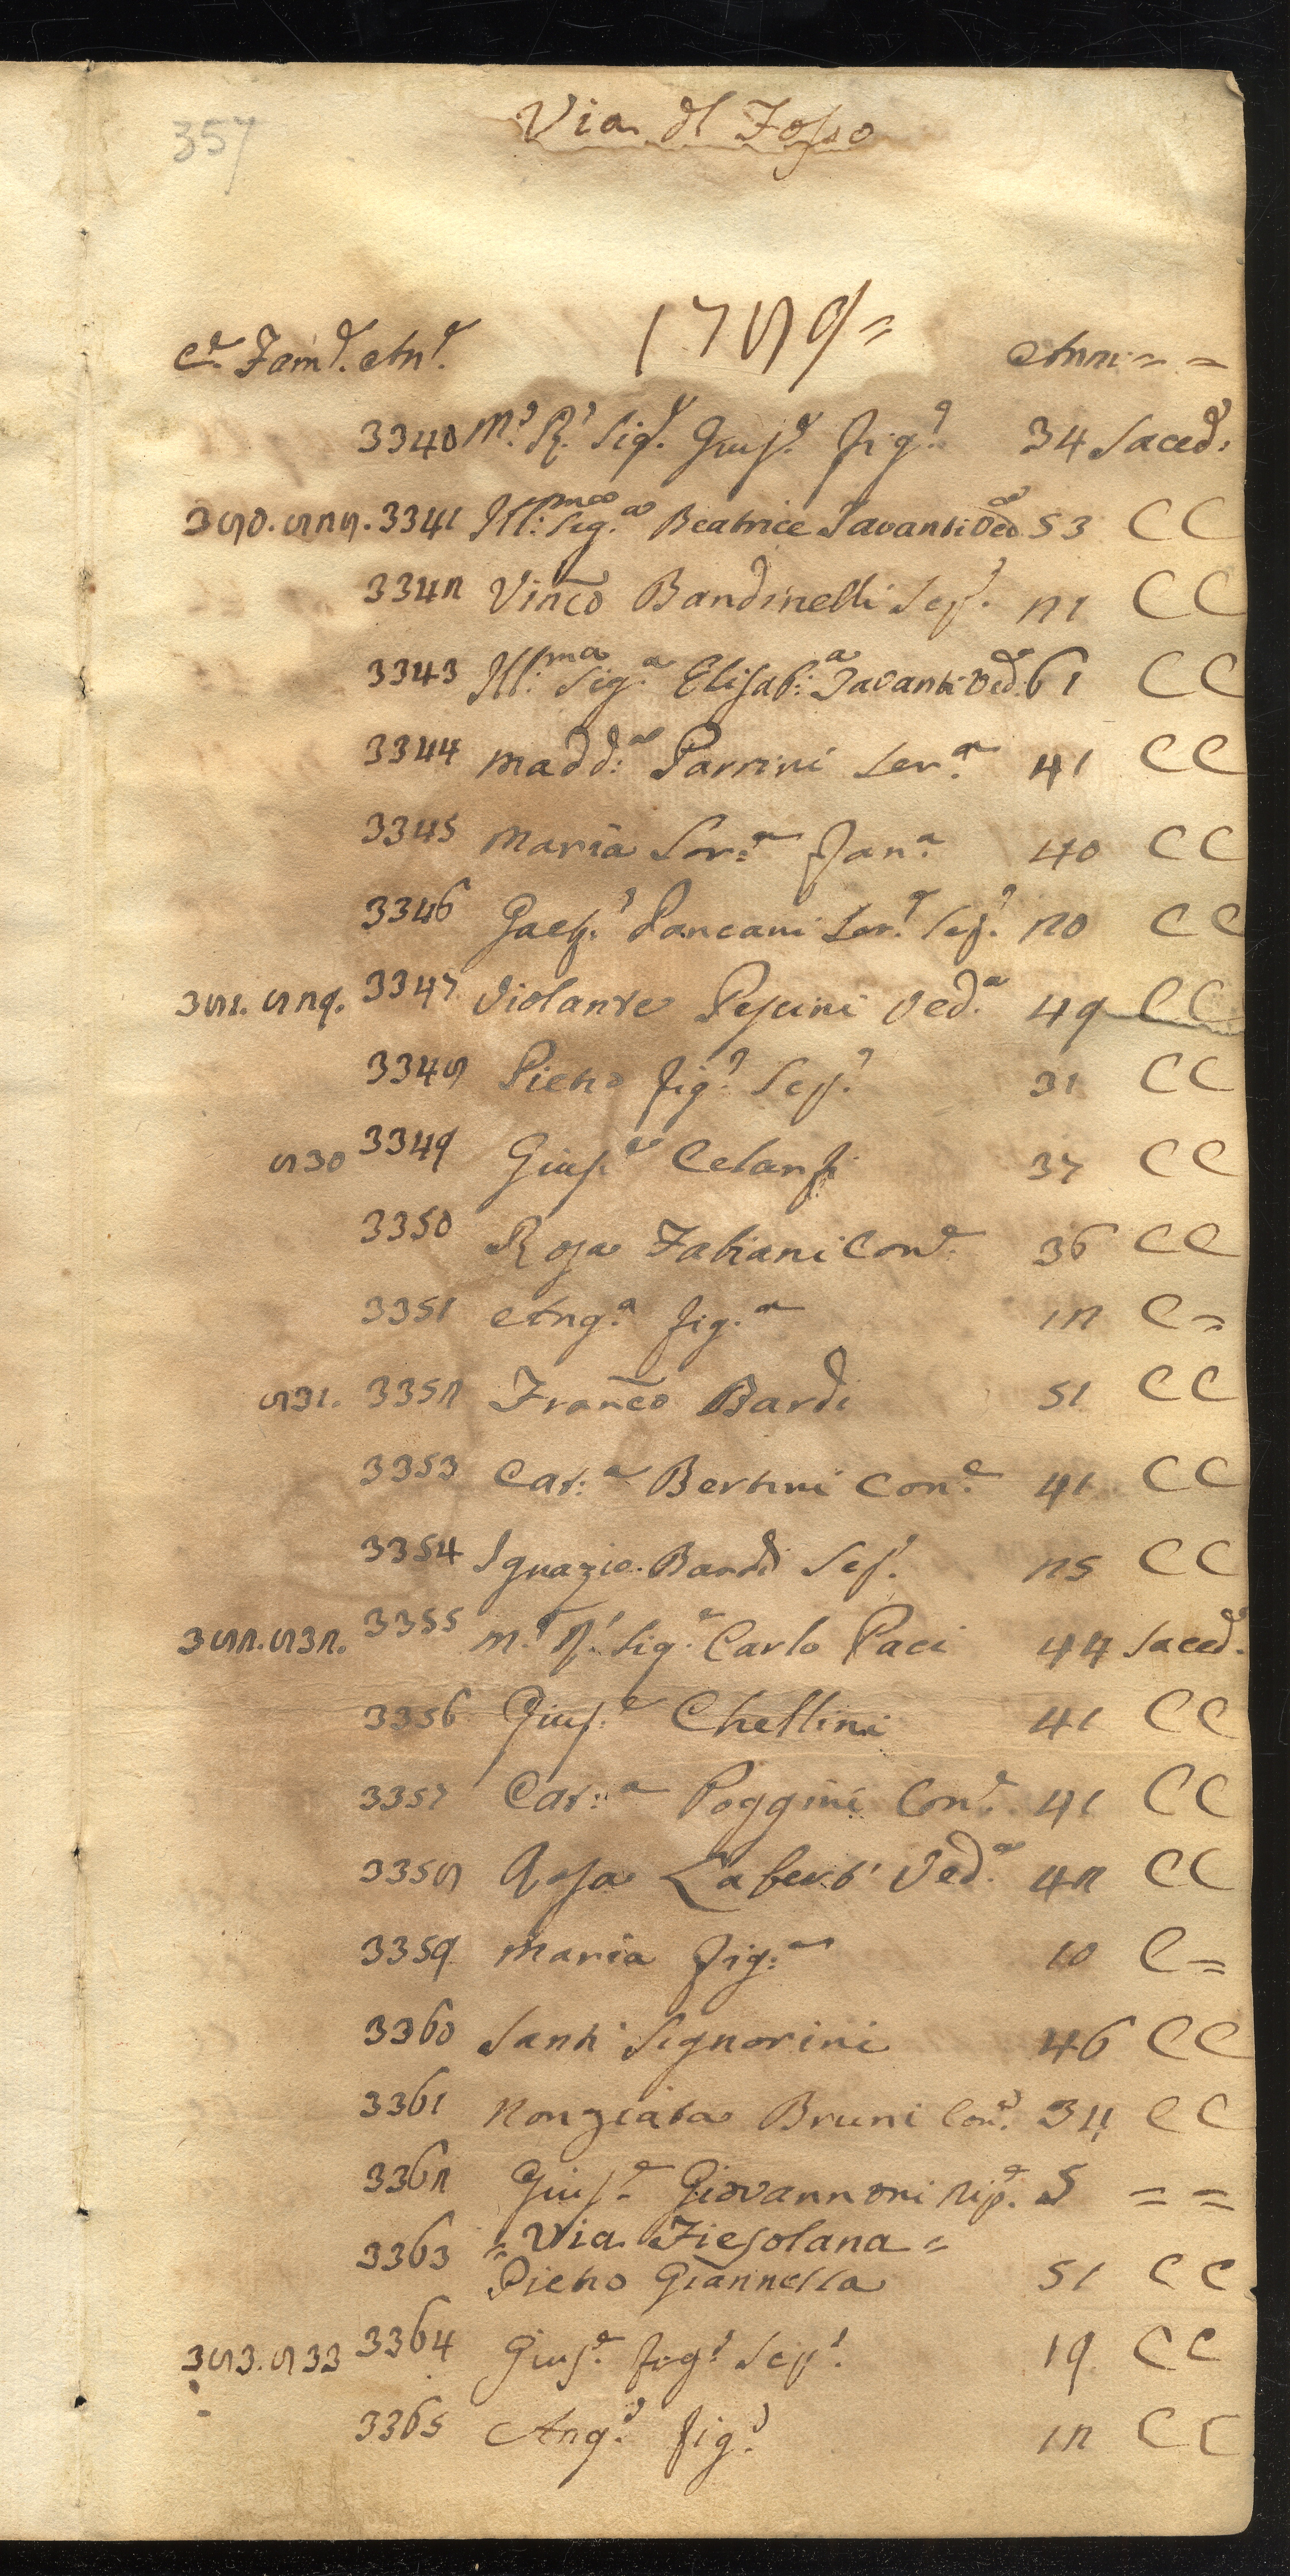 357
Via dl Fosso
1789=
Ce. Fame. Ane. Anni = =
3340 Mo. Ro. Sigr. Giuse. figo. 34 Saced:
380. 828. 3341 Ill:ma Sig:a Beatrice Pavanti Veda 53 C C
3342 Vinco Bandinelli Sepo. 21 C C
3343 Ill:ma Sig:a Elisab:a Pavanti Ved. 61 C C
3344 Madd:a Parrini Ser:a 41 C C
3345 Maria Sor:a Fan:a 40 C C
3346 Gaeto. Pancani Sero. Sepo. 20 C C
381. 829. 3347 Violante Pescini Ved.a 49 C C
3348 Pietro figo. Sepo. 31 C C
830 3349 Giuse. Celanfi 37 C C
3350 Rosa Fabiani Cone. 36 C C
3351 Ang.a fig.a 12 C =
831. 3352 Franco Bardi 51 C C
3353 Cat:a Bertini Cone. 41 C C
3354 Ignazio Bardi Sepo. 25 C C
382. 832. 3355 Mo. Ro. Sigr. Carlo Paci 44 Saced.
3356 Giuse. Chellini 41 C C
3357 Cat:a Poggini Cone. 41 C C
3358 Rosa Laberti Ved.a 42 C C
3359 Maria fig:a 10 C =
3360 Santi Signorini 46 C C
3361 Nonziata Bruni Cone. 34 C C
3362 Giuse. Giovannoni Nipe. 5 = =
= Via Fiesolana =
3363 Pietro Giannella 51 C C
383. 833 3364 Giuse. figo. Sepo. 19 C C
3365 Ango. figo. 12 C C